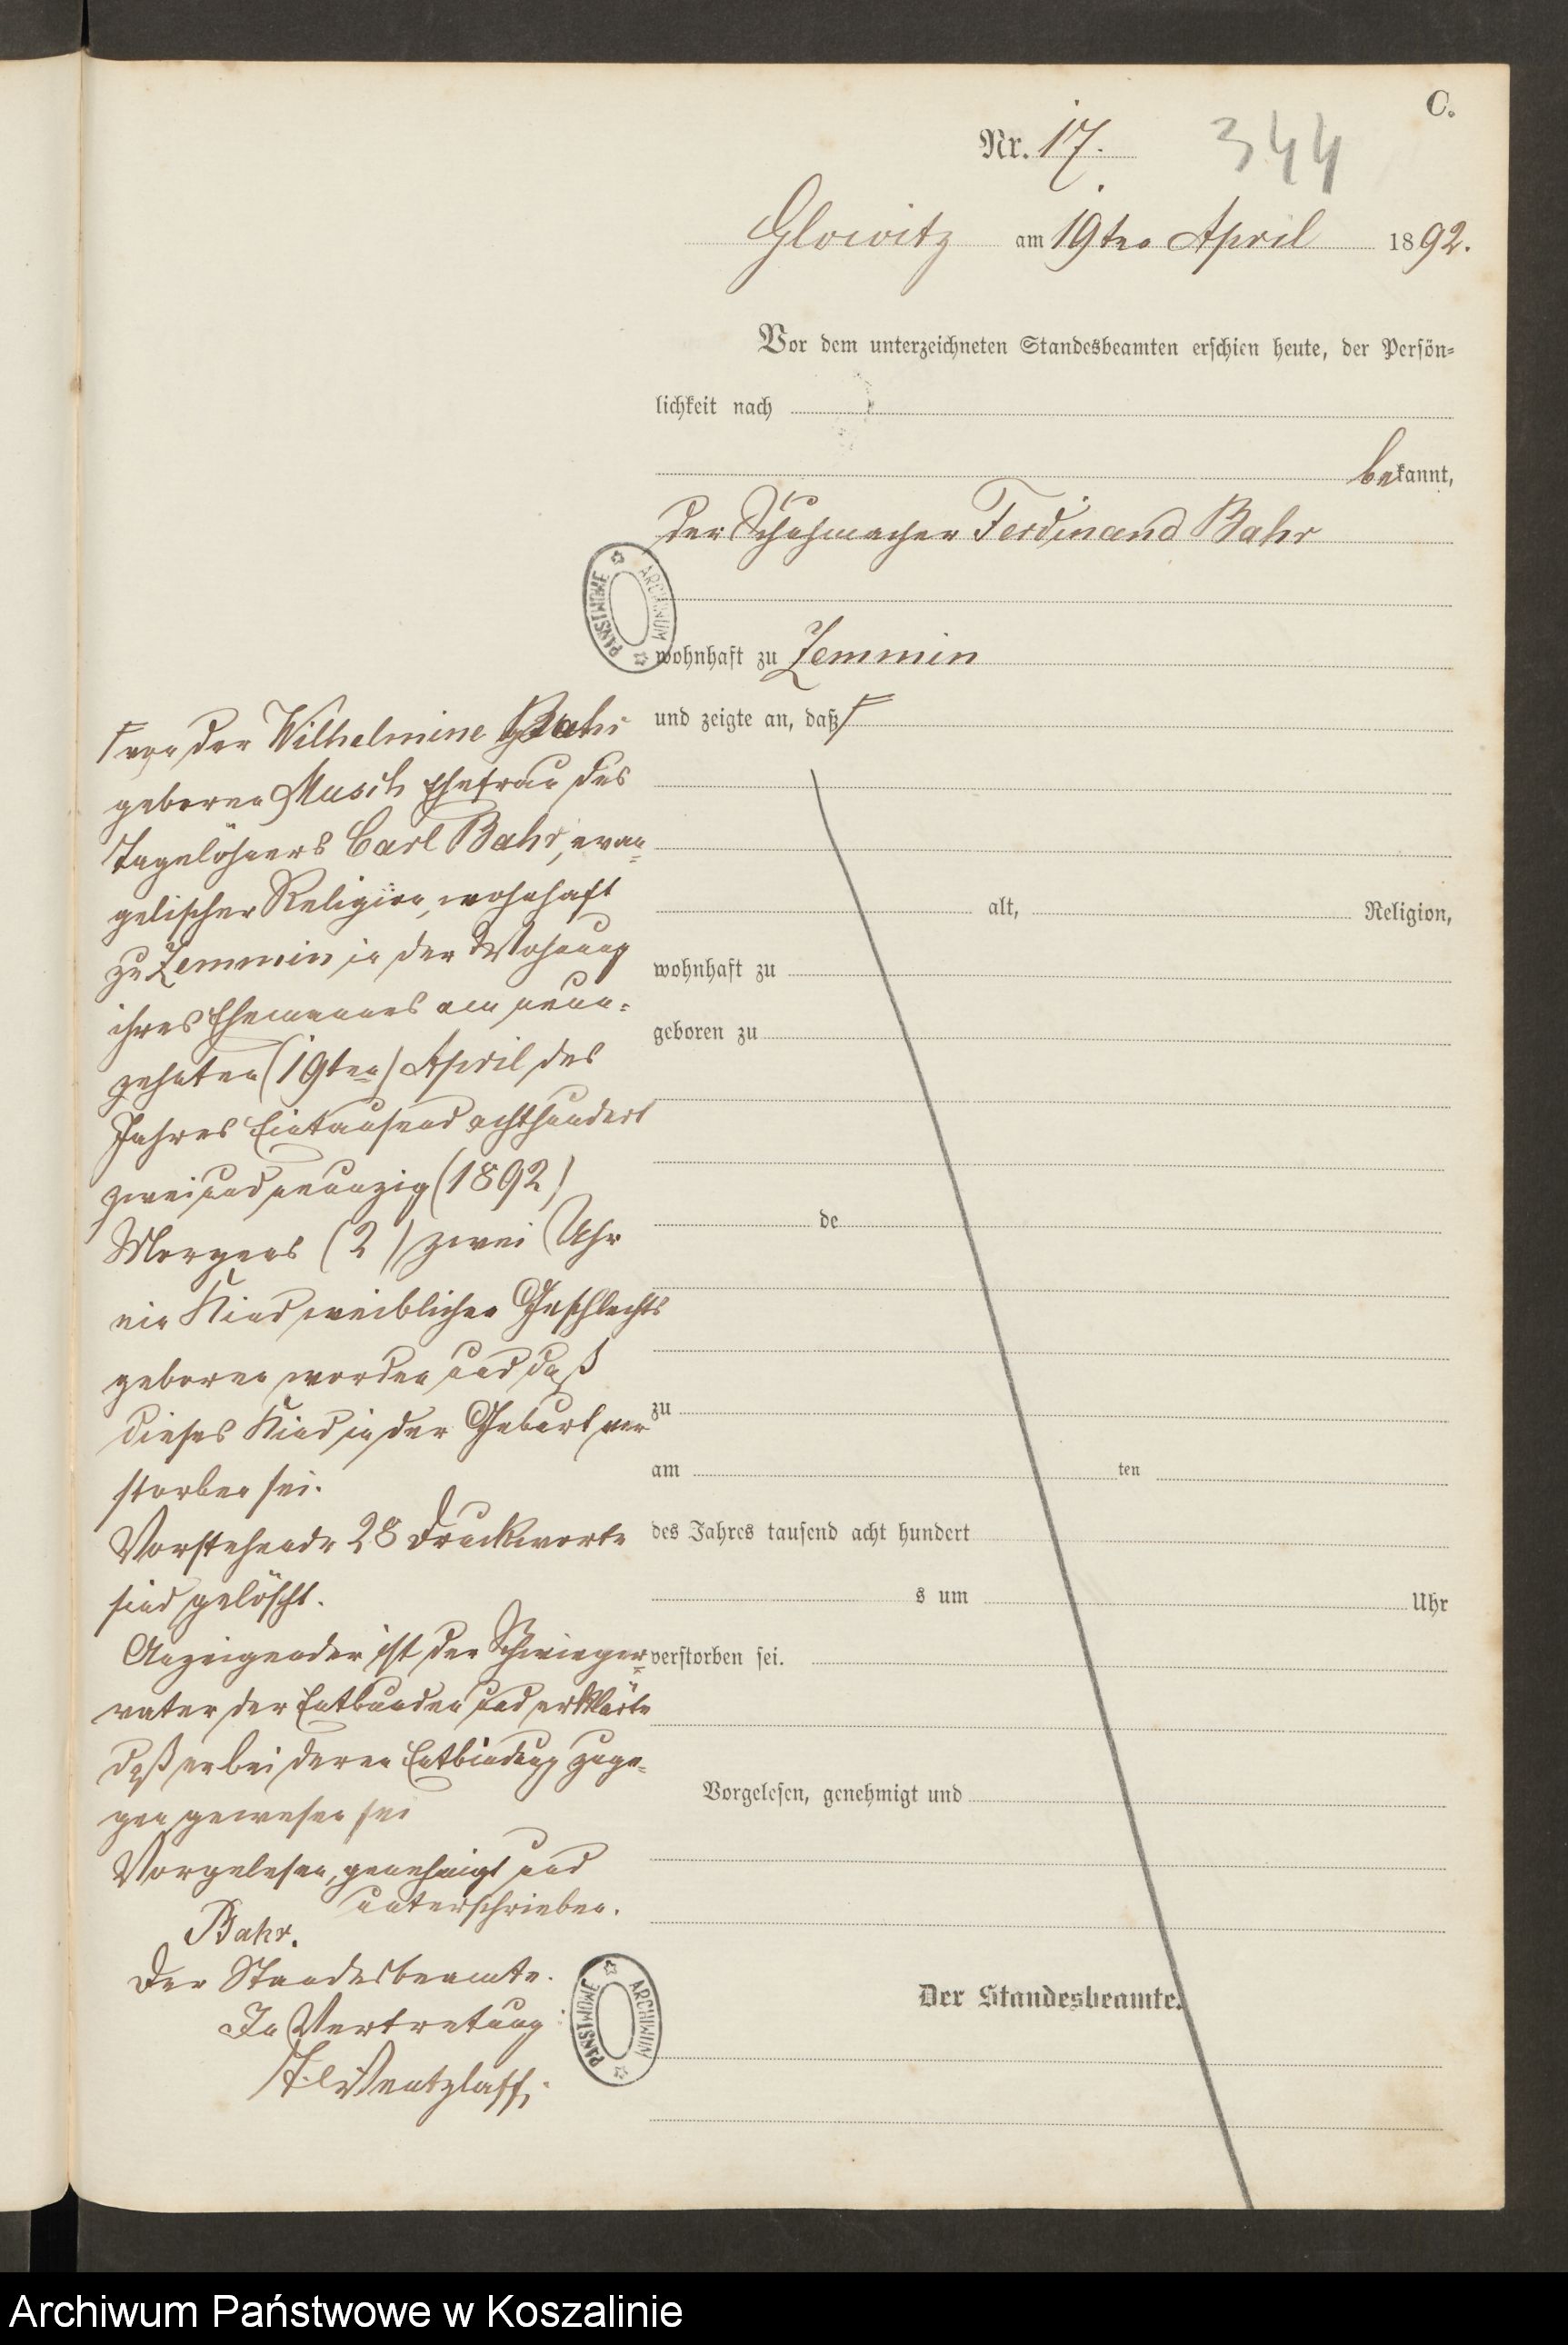 C.
Nr. 17. 344
Glowitz am 19ten April 1892.
Vor dem unterzeichneten Standesbeamten erschien heute, der Persön-
lichkeit nach
bekannt,
der Schuhmacher Ferdinand Bahr
wohnhaft zu Zemmin
und zeigte an, daß
von der Wilhelmine Bahr
geboren Musch Ehefrau des
Tagelöhners Carl Bahr, evan-
gelischer Religion, wohnhaft
zu Zemmin in der Wohnung
ihres Ehemannes am neun-
zehnten (19ten) April des
Jahres Eintausend achthundert
zwei und neunzig (1892)
Morgens (2) zwei Uhr
ein Kind weiblichen Geschlechts
geboren worden und daß
dieses Kind in der Geburt ver
storben sei.
Vorstehende 28 Druckworte
sind gelöscht.
Anzeigender ist der Schwieger-
vater der Entbunden und erklärte
daß er bei deren Entbindung zuge-
gen gewesen sei
Vorgelesen, genehmigt und
unterschrieben.
Bahr.
Der Standesbeamte.
In Vertretung:
Wentzlaff.
alt, Religion,
wohnhaft zu
geboren zu
de
zu
am ten
des Jahres tausend acht hundert
s um Uhr
verstorben sei.
Vorgelesen, genehmigt und
Der Standesbeamte.
ARCHIWUM PAŃSTWOWE
ARCHIWUM PAŃSTWOWE
Archiwum Państwowe w Koszalinie